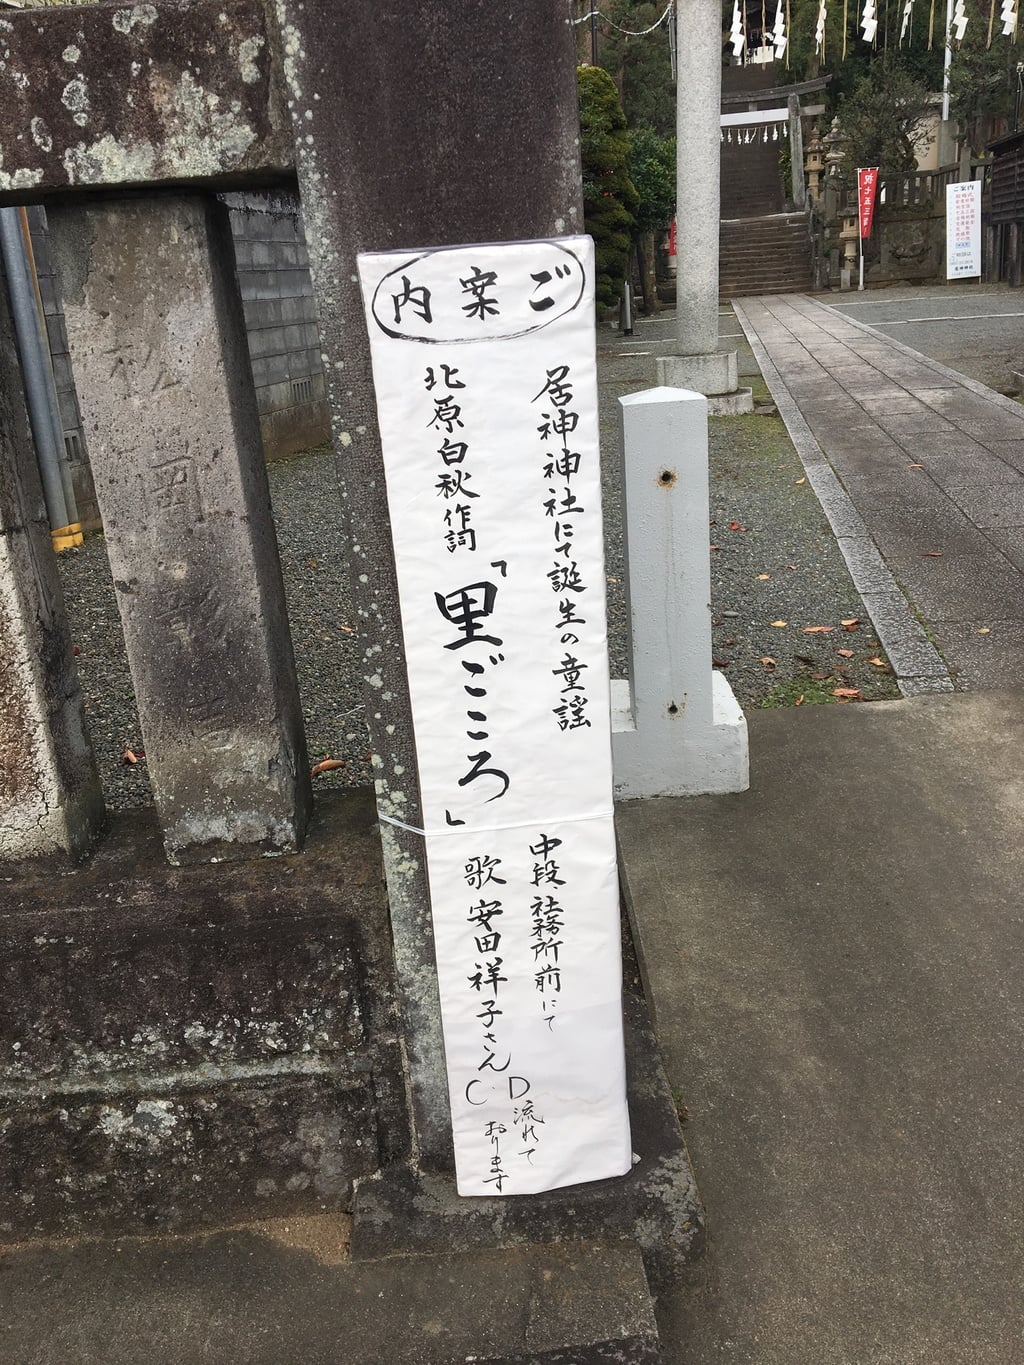 ご案内
居神神社にて誕生の童謡
北原白秋作詞
「里ごころ」
中段、社務所前にて
歌 安田祥子さん
CD流れて
おります
祝七五三詣
ご案内
居神神社